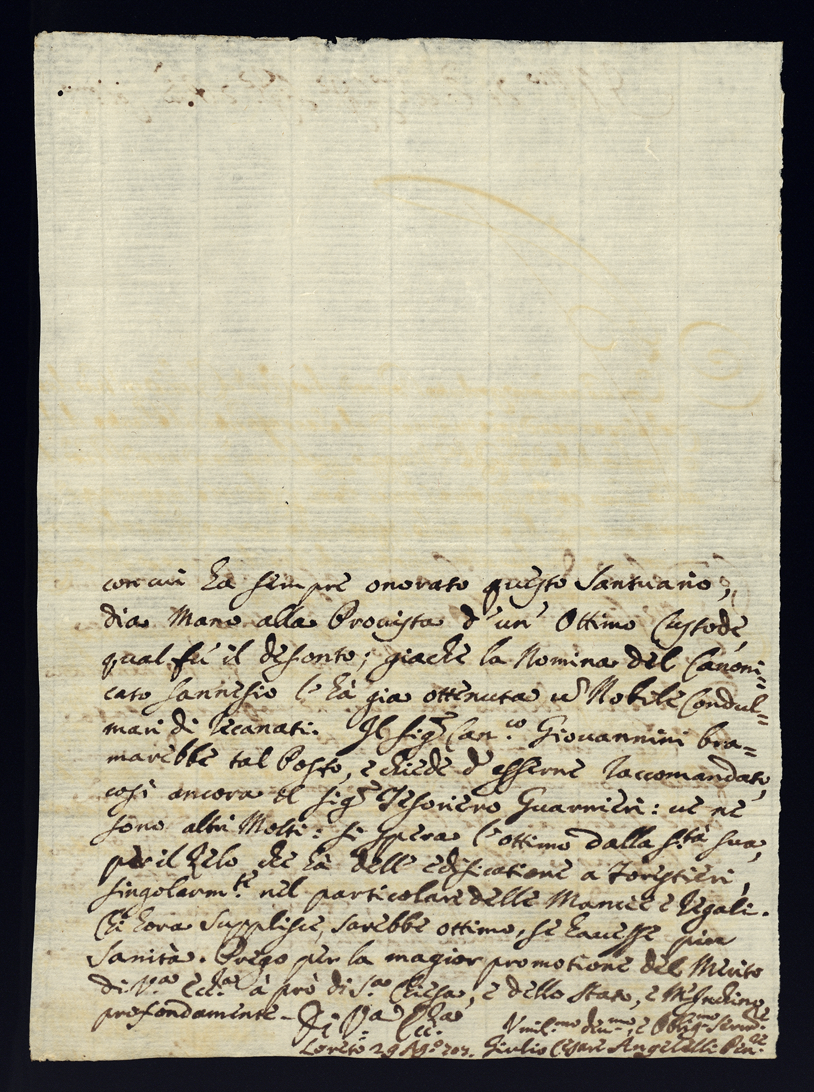 con cui hà sempre onorato questo Santuario,
dia Mano alla Provista d'un' Ottimo Custode
qual fù il defonto; giache la Nomina del Canoni=
cato Sannesio l'hà gia ottenuta Nobile Condul=
mari di Recanati. Il Sig.r Can.co Giovannini bra=
marebbe tal Posto, e chiede d'esserne raccomandato,
così ancora il Sig.r Tesoriero Guarnieri: ve ne
sono altri Molti: si spera l'ottimo dalla S.tà Sua,
per il Zelo che hà dell'edificatione a Forestieri,
singolarm.te nel particolare delle Mancie e Regali.
Chi hora supplisce, sarebbe ottimo, se havesse più
Sanità. Prego per la magior promotione del Merito
di V.a Ecc.a à prò di S.a Chiesa, e dello Stato, e M'Inchino
profondamente - Di V.a Ecc.a
Umil.mo Dev.mo, e Obblig.mo Serv.re
Loreto 29 Ag.o 707. Giulio Cesare Angelelli Pen.re